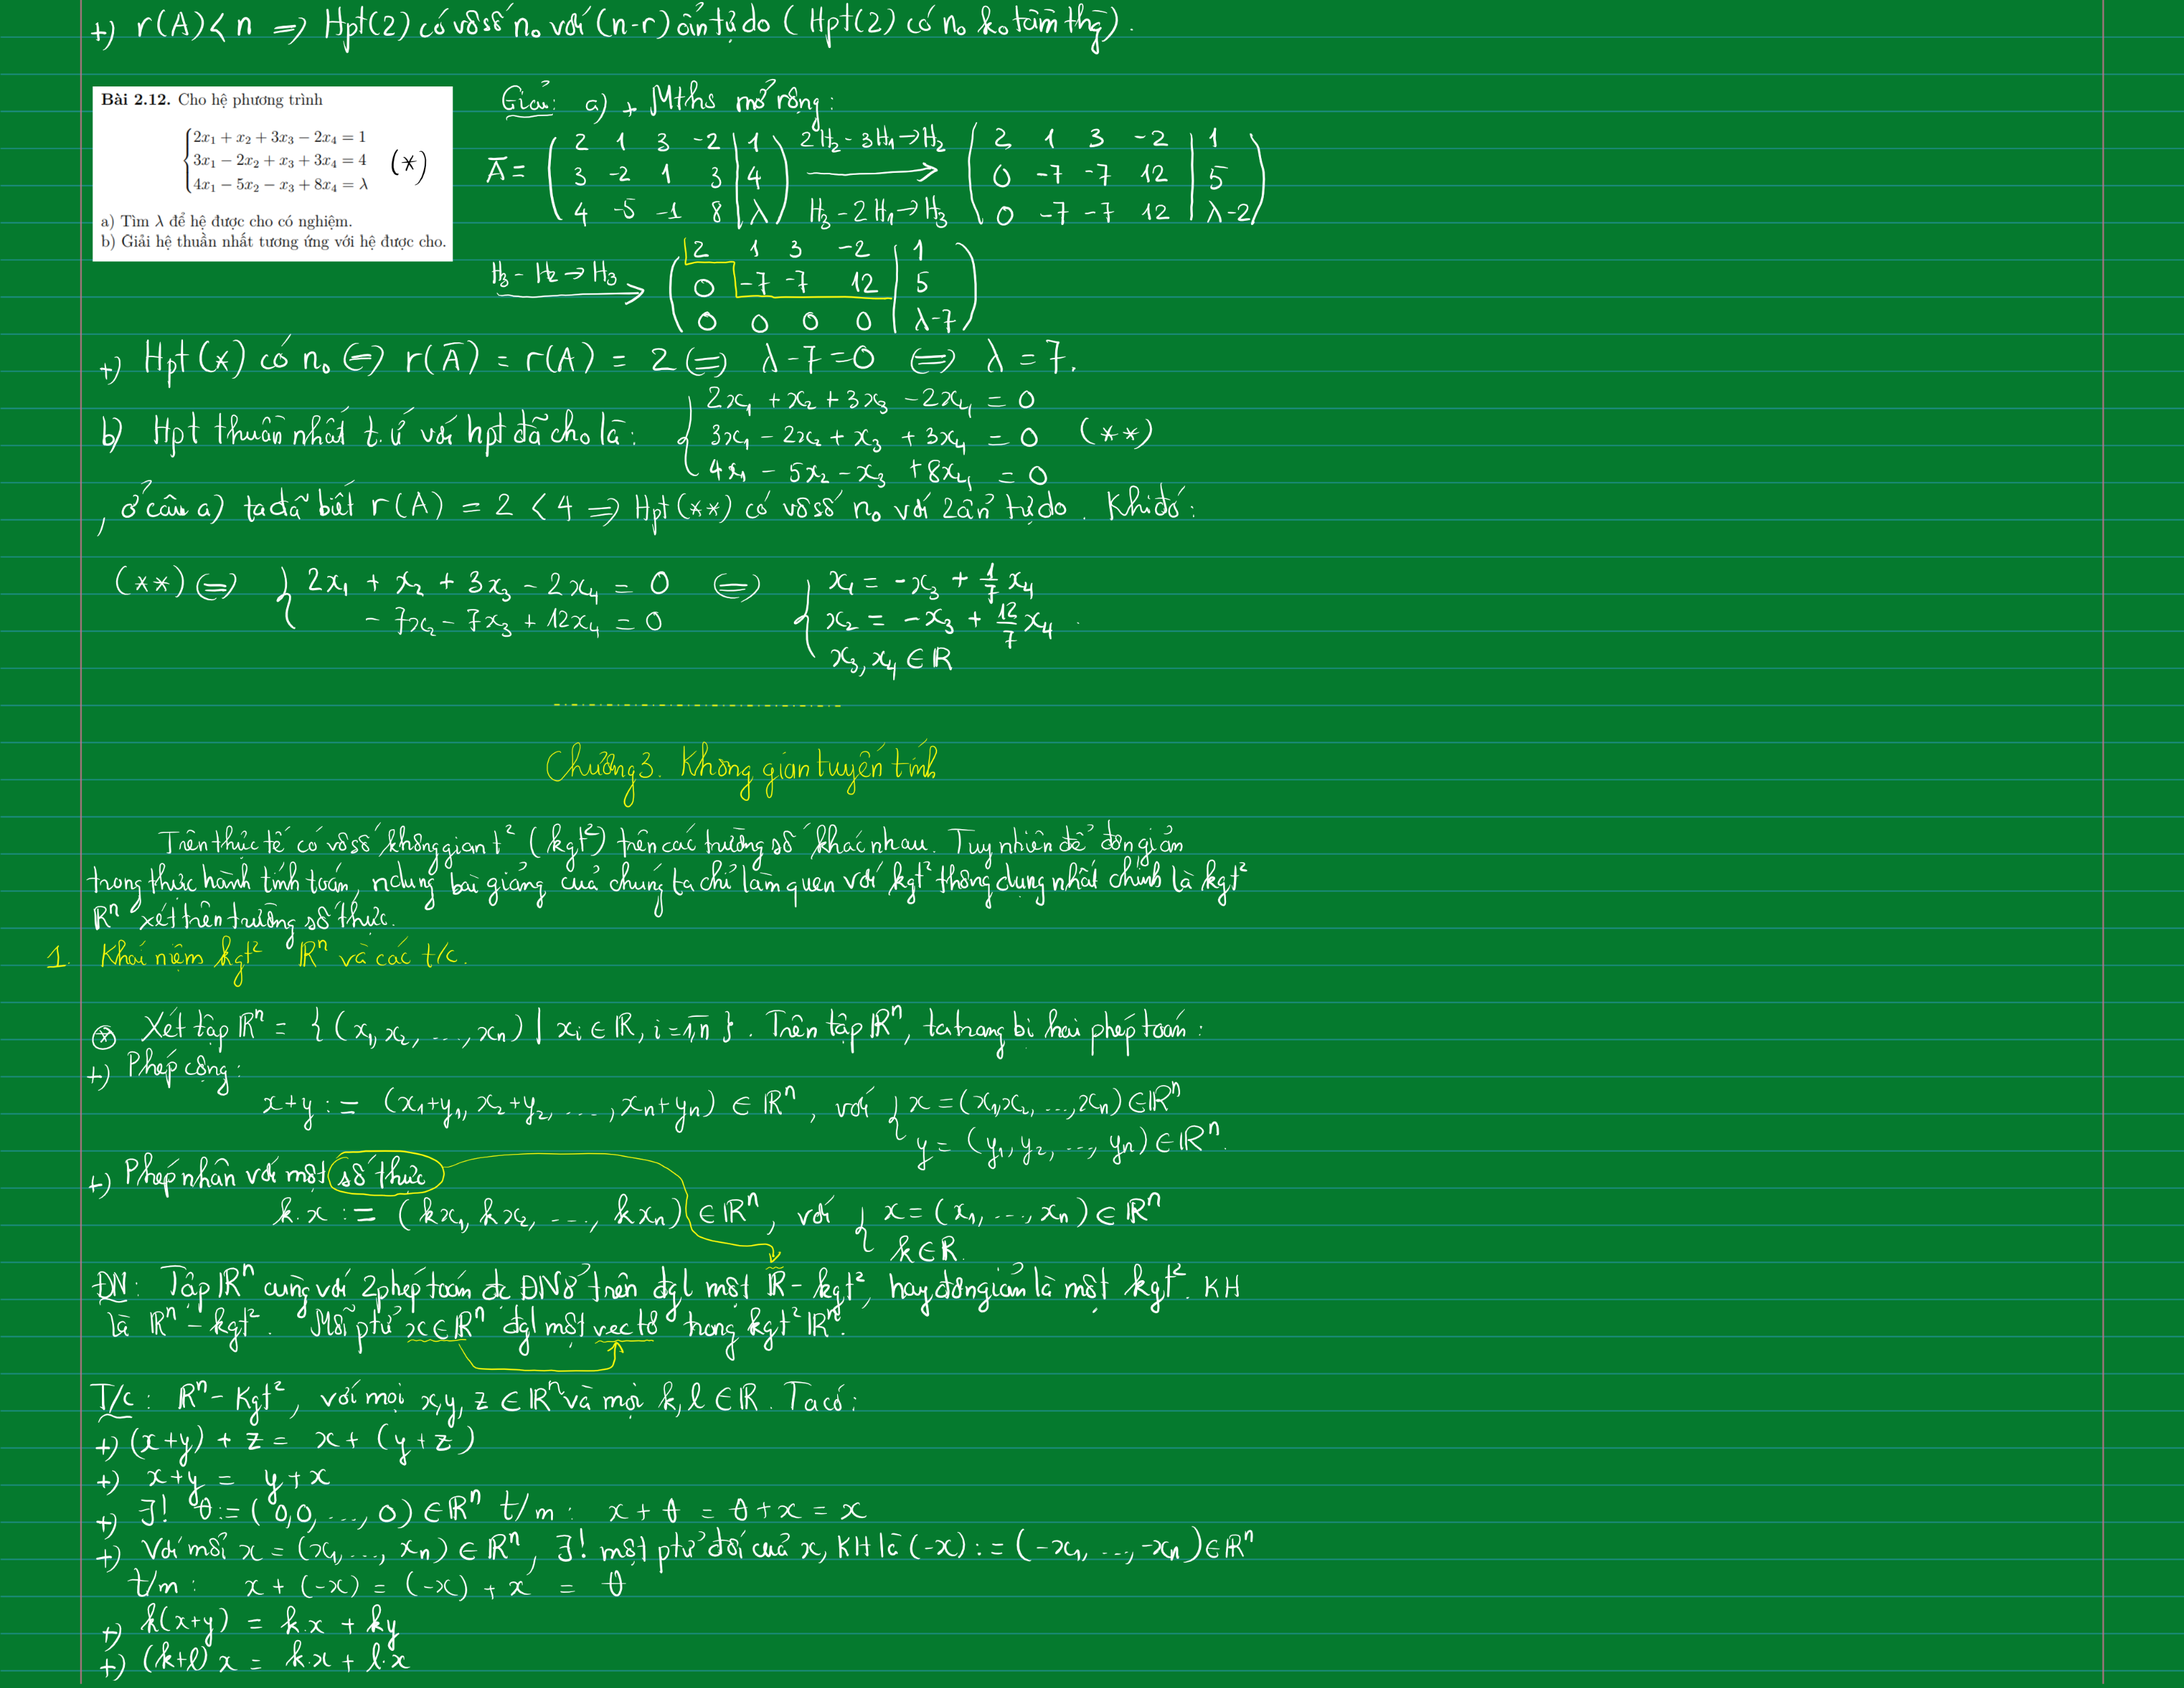 +) r(A) < n => Hpt(2) có vô số n₀ với (n-r) ẩn tự do ( Hpt(2) có n₀ ko tầm thg ).
Bài 2.12. Cho hệ phương trình
2x₁ + x₂ + 3x₃ − 2x₄ = 1
3x₁ − 2x₂ + x₃ + 3x₄ = 4 (*)
4x₁ − 5x₂ − x₃ + 8x₄ = λ
a) Tìm λ để hệ được cho có nghiệm.
b) Giải hệ thuần nhất tương ứng với hệ được cho.
Giải: a) + Mths mở rộng:
2 1 3 -2 | 1 2H₂ - 3H₁ → H₂ 2 1 3 -2 | 1
Ā = 3 -2 1 3 | 4 0 -7 -7 12 | 5
4 -5 -1 8 | λ H₃ - 2H₁ → H₃ 0 -7 -7 12 | λ-2
2 1 3 -2 | 1
H₃ - H₂ → H₃ 0 -7 -7 12 | 5
0 0 0 0 | λ-7
+) Hpt (*) có n₀ <=> r(Ā) = r(A) = 2 <=> λ - 7 = 0 <=> λ = 7.
2x₁ + x₂ + 3x₃ - 2x₄ = 0
b) Hpt thuần nhất t.ứ với hpt đã cho là: 3x₁ - 2x₂ + x₃ + 3x₄ = 0 (**)
4x₁ - 5x₂ - x₃ + 8x₄ = 0
, ở câu a) ta đã biết r(A) = 2 < 4 => Hpt (**) có vô số n₀ với 2 ẩn tự do. Khi đó:
(**) <=> 2x₁ + x₂ + 3x₃ - 2x₄ = 0 <=> x₁ = -x₃ + 1/7 x₄
- 7x₂ - 7x₃ + 12x₄ = 0 x₂ = -x₃ + 12/7 x₄ .
x₃, x₄ ∈ ℝ
Chương 3. Không gian tuyến tính
Trên thực tế có vô số không gian t² (kgt²) trên các trường số khác nhau. Tuy nhiên để đơn giản
trong thực hành tính toán, ndung bài giảng của chúng ta chỉ làm quen với kgt² thông dụng nhất chính là kgt²
ℝⁿ xét trên trường số thực.
1. Khái niệm kgt² ℝⁿ và các t/c.
⊛ Xét tập ℝⁿ = { (x₁, x₂, ..., xₙ) | xᵢ ∈ ℝ, i = 1,n }. Trên tập ℝⁿ, ta trang bị hai phép toán:
+) Phép cộng:
x+y := (x₁+y₁, x₂+y₂, ..., xₙ+yₙ) ∈ ℝⁿ, với x = (x₁, x₂, ..., xₙ) ∈ ℝⁿ
y = (y₁, y₂, ..., yₙ) ∈ ℝⁿ.
+) Phép nhân với một số thực
k.x := (kx₁, kx₂, ..., kxₙ) ∈ ℝⁿ, với x = (x₁, ..., xₙ) ∈ ℝⁿ
k ∈ ℝ.
ĐN: Tập ℝⁿ cùng với 2 phép toán đc ĐN ở trên đgl một ℝ - kgt², hay đơn giản là một kgt². KH
là ℝⁿ - kgt². Mỗi ptử x ∈ ℝⁿ đgl một vectơ trong kgt² ℝⁿ.
T/c: ℝⁿ - Kgt², với mọi x, y, z ∈ ℝⁿ và mọi k, l ∈ ℝ. Ta có:
+) (x+y) + z = x + (y+z)
+) x+y = y+x
+) ∃! θ := (0,0, ..., 0) ∈ ℝⁿ t/m: x + θ = θ + x = x
+) Với mỗi x = (x₁, ..., xₙ) ∈ ℝⁿ, ∃! một ptử đối của x, KH là (-x) := (-x₁, ..., -xₙ) ∈ ℝⁿ
t/m: x + (-x) = (-x) + x = θ
+) k(x+y) = k.x + ky
+) (k+l) x = k.x + l.x